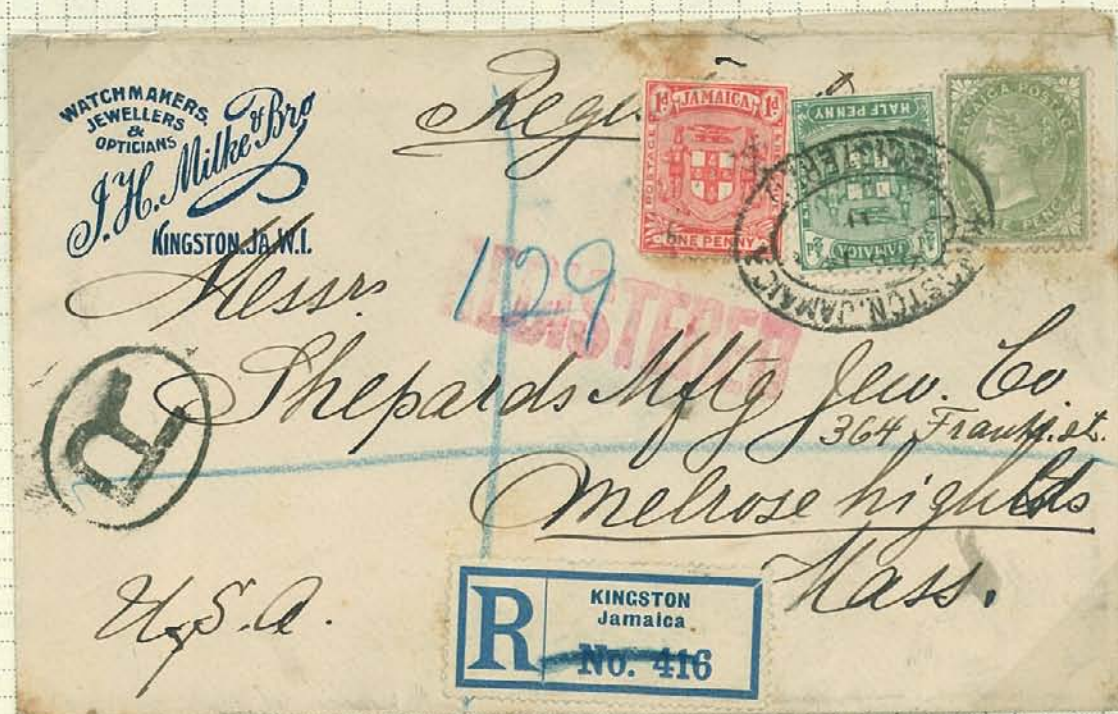 WATCHMAKERS,
JEWELLERS
&
OPTICIANS
J. H. Milke & Bro
KINGSTON, JA. W.I.
1d JAMAICA 1d
POSTAGE
ONE PENNY
HALF PENNY
½d JAMAICA ½d
JAMAICA POSTAGE
THREE PENCE
REGISTERED
KINGSTON, JAMAICA
129
REGISTERED
Messrs
Shepards Mftg Jew. Co.
364 Frank. st.
Melrose highlds
Mass.
U.S.A.
R
R
KINGSTON
Jamaica
No. 416